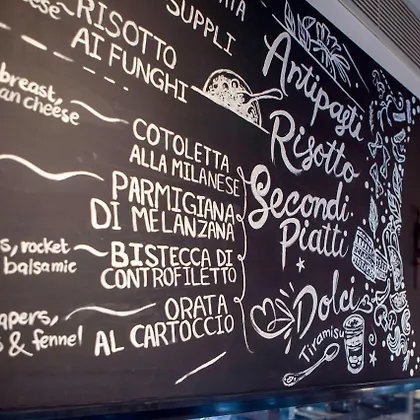 RISOTTO
AI FUNGHI
SUPPLI
breast,
cheese
COTOLETTA
ALLA MILANESE
PARMIGIANA
DI MELANZANA
rocket
balsamic
BISTECCA DI
CONTROFILETTO
ORATA
& fennel
AL CARTOCCIO
Antipasti
Risotto
Secondi
Piatti
Dolci
Tiramisu